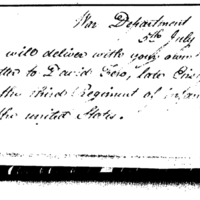 War Department
5th July
will deliver with your own
to David Fero, late
the third Regiment of Infan
the united States.